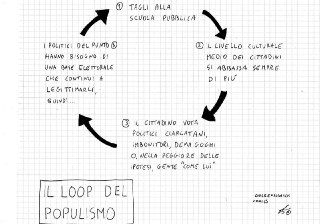 ① TAGLI ALLA
SCUOLA PUBBLICA
② IL LIVELLO CULTURALE
MEDIO DEI CITTADINI
SI ABBASSA SEMPRE
DI PIÙ
③ IL CITTADINO VOTA
POLITICI CIARLATANI,
IMBONITORI, DEMAGOGHI
O, NELLA PEGGIORE DELLE
IPOTESI, GENTE "COME LUI"
I POLITICI DEL PUNTO ③
HANNO BISOGNO DI
UNA BASE ELETTORALE
CHE CONTINUI A
LEGITTIMARLI,
QUINDI...
IL LOOP DEL
POPULISMO